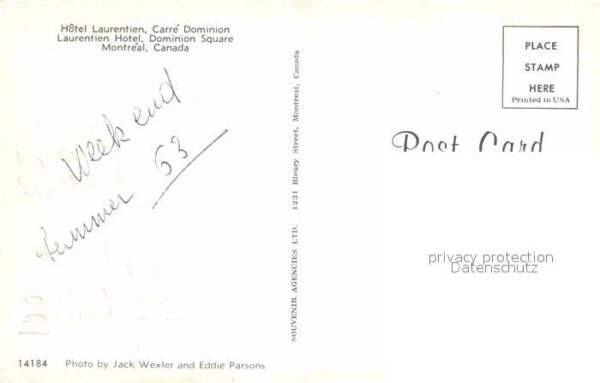 Hôtel Laurentien, Carré Dominion
Laurentien Hotel, Dominion Square
Montréal, Canada
Week end
Summer 63
SOUVENIR AGENCIES LTD. 1231 Bleury Street, Montreal, Canada
PLACE
STAMP
HERE
Printed in USA
Post Card
privacy protection
Datenschutz
14184 Photo by Jack Wexler and Eddie Parsons